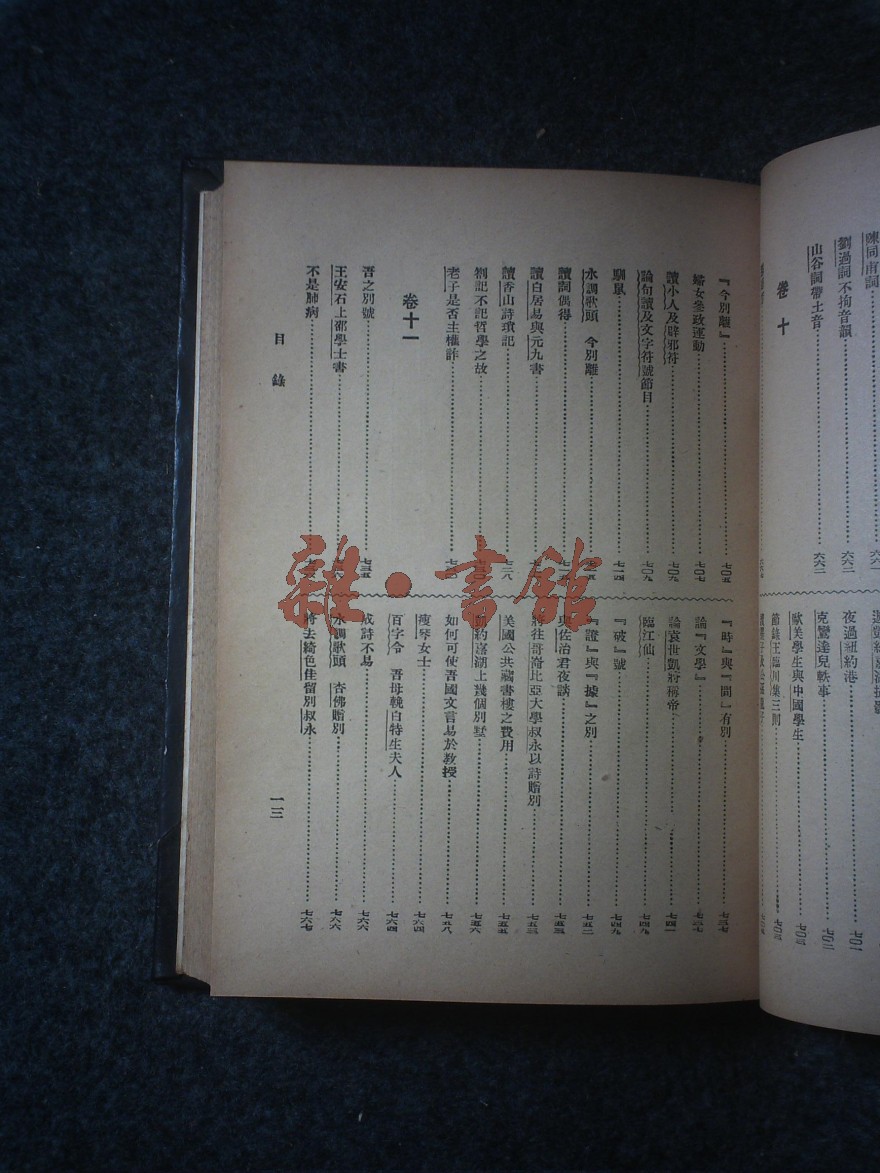 陳同甫詞……六六一
劉過詞不拘音韻……六六二
山谷詞帶土音……六六二
卷十
夜過紐約港……七〇一
克鸞達兒軼事……七〇二
歐美學生與中國學生……七〇三
節錄王臨川集三則……七〇三
『今別離』……七〇五
婦女參政運動……七〇七
讀小人及辟邪符……七〇九
論句讀及文字符號節目……七〇九
馴鼠……七一四
水調歌頭 今別離
讀詞偶得
讀白居易與元九書
讀香山詩瑣記……七二八
劄記不記哲學之故
老子是否主權詐
卷十一
吾之別號……七三五
王安石上邵學士書
不是肺病
『時』與『間』有別……七三七
論『文學』……七三七
論袁世凱將稱帝……七四一
臨江仙……七四九
『破』號……七四九
『證』與『據』之別……七五二
與佐治君夜談……七五三
將往哥崙比亞大學叔永以詩贈別……七五三
美國公共藏書樓之費用……七五五
凱約嘉湖上幾個別墅……七五六
如何可使吾國文言易於教授……七五八
瘦琴女士……七六四
百字令 吾母輓白特生夫人……七六四
成詩不易……七六六
水調歌頭 杏佛贈別……七六六
將去綺色佳留別叔永……七六七
目錄
一三
雜·書館